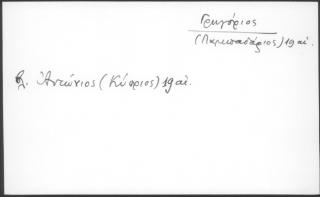 Γρηγόριος
(Παρισιάδης) 19 αἰ.
βλ. Ἀντώνιος (Κύπριος) 19 αἰ.